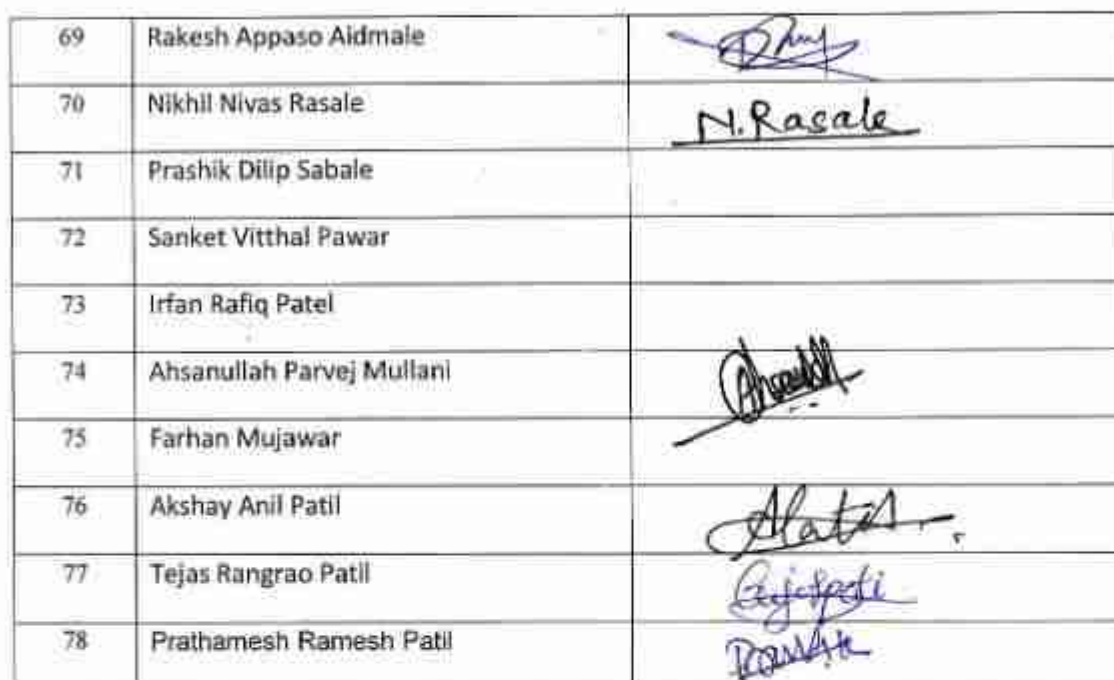 69 Rakesh Appaso Aidmale
70 Nikhil Nivas Rasale N.Rasale
71 Prashik Dilip Sabale
72 Sanket Vitthal Pawar
73 Irfan Rafiq Patel
74 Ahsanullah Parvej Mullani
75 Farhan Mujawar
76 Akshay Anil Patil
77 Tejas Rangrao Patil
78 Prathamesh Ramesh Patil